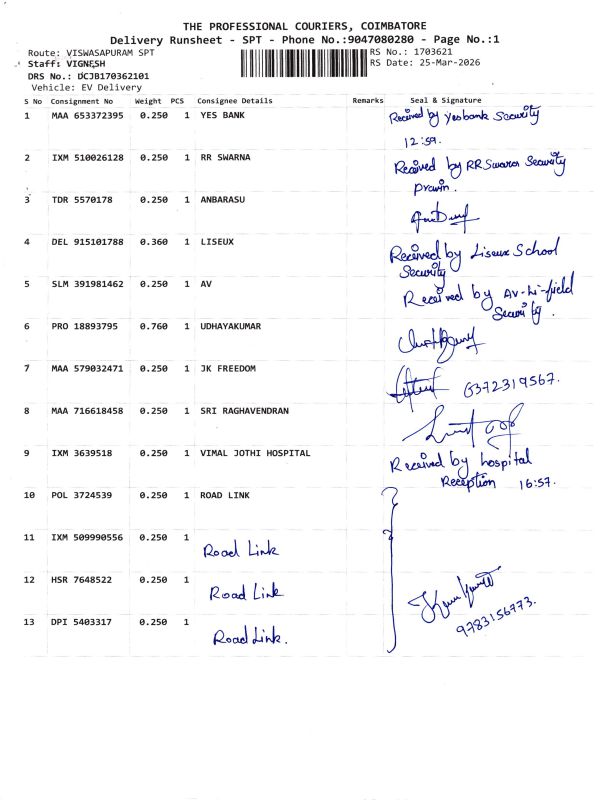 THE PROFESSIONAL COURIERS, COIMBATORE
Delivery Runsheet - SPT - Phone No.:9047080280 - Page No.:1
Route: VISWASAPURAM SPT
RS No.: 1703621
Staff: VIGNESH
RS Date: 25-Mar-2026
DRS No.: DCJB170362101
Vehicle: EV Delivery
S No Consignment No Weight PCS Consignee Details Remarks Seal & Signature
1 MAA 653372395 0.250 1 YES BANK Received by yesbank Security
12:59.
2 IXM 510026128 0.250 1 RR SWARNA Received by RR Swarna Security
Pravin.
3 TDR 5570178 0.250 1 ANBARASU
4 DEL 915101788 0.360 1 LISEUX Received by Liseux School
Security
5 SLM 391981462 0.250 1 AV Received by AV-hi-field
Security.
6 PRO 18893795 0.760 1 UDHAYAKUMAR
7 MAA 579032471 0.250 1 JK FREEDOM 6372319567.
8 MAA 716618458 0.250 1 SRI RAGHAVENDRAN
9 IXM 3639518 0.250 1 VIMAL JOTHI HOSPITAL Received by hospital
Reception 16:57.
10 POL 3724539 0.250 1 ROAD LINK
11 IXM 509990556 0.250 1 Road Link
12 HSR 7648522 0.250 1 Road Link
9783156773.
13 DPI 5403317 0.250 1 Road Link.